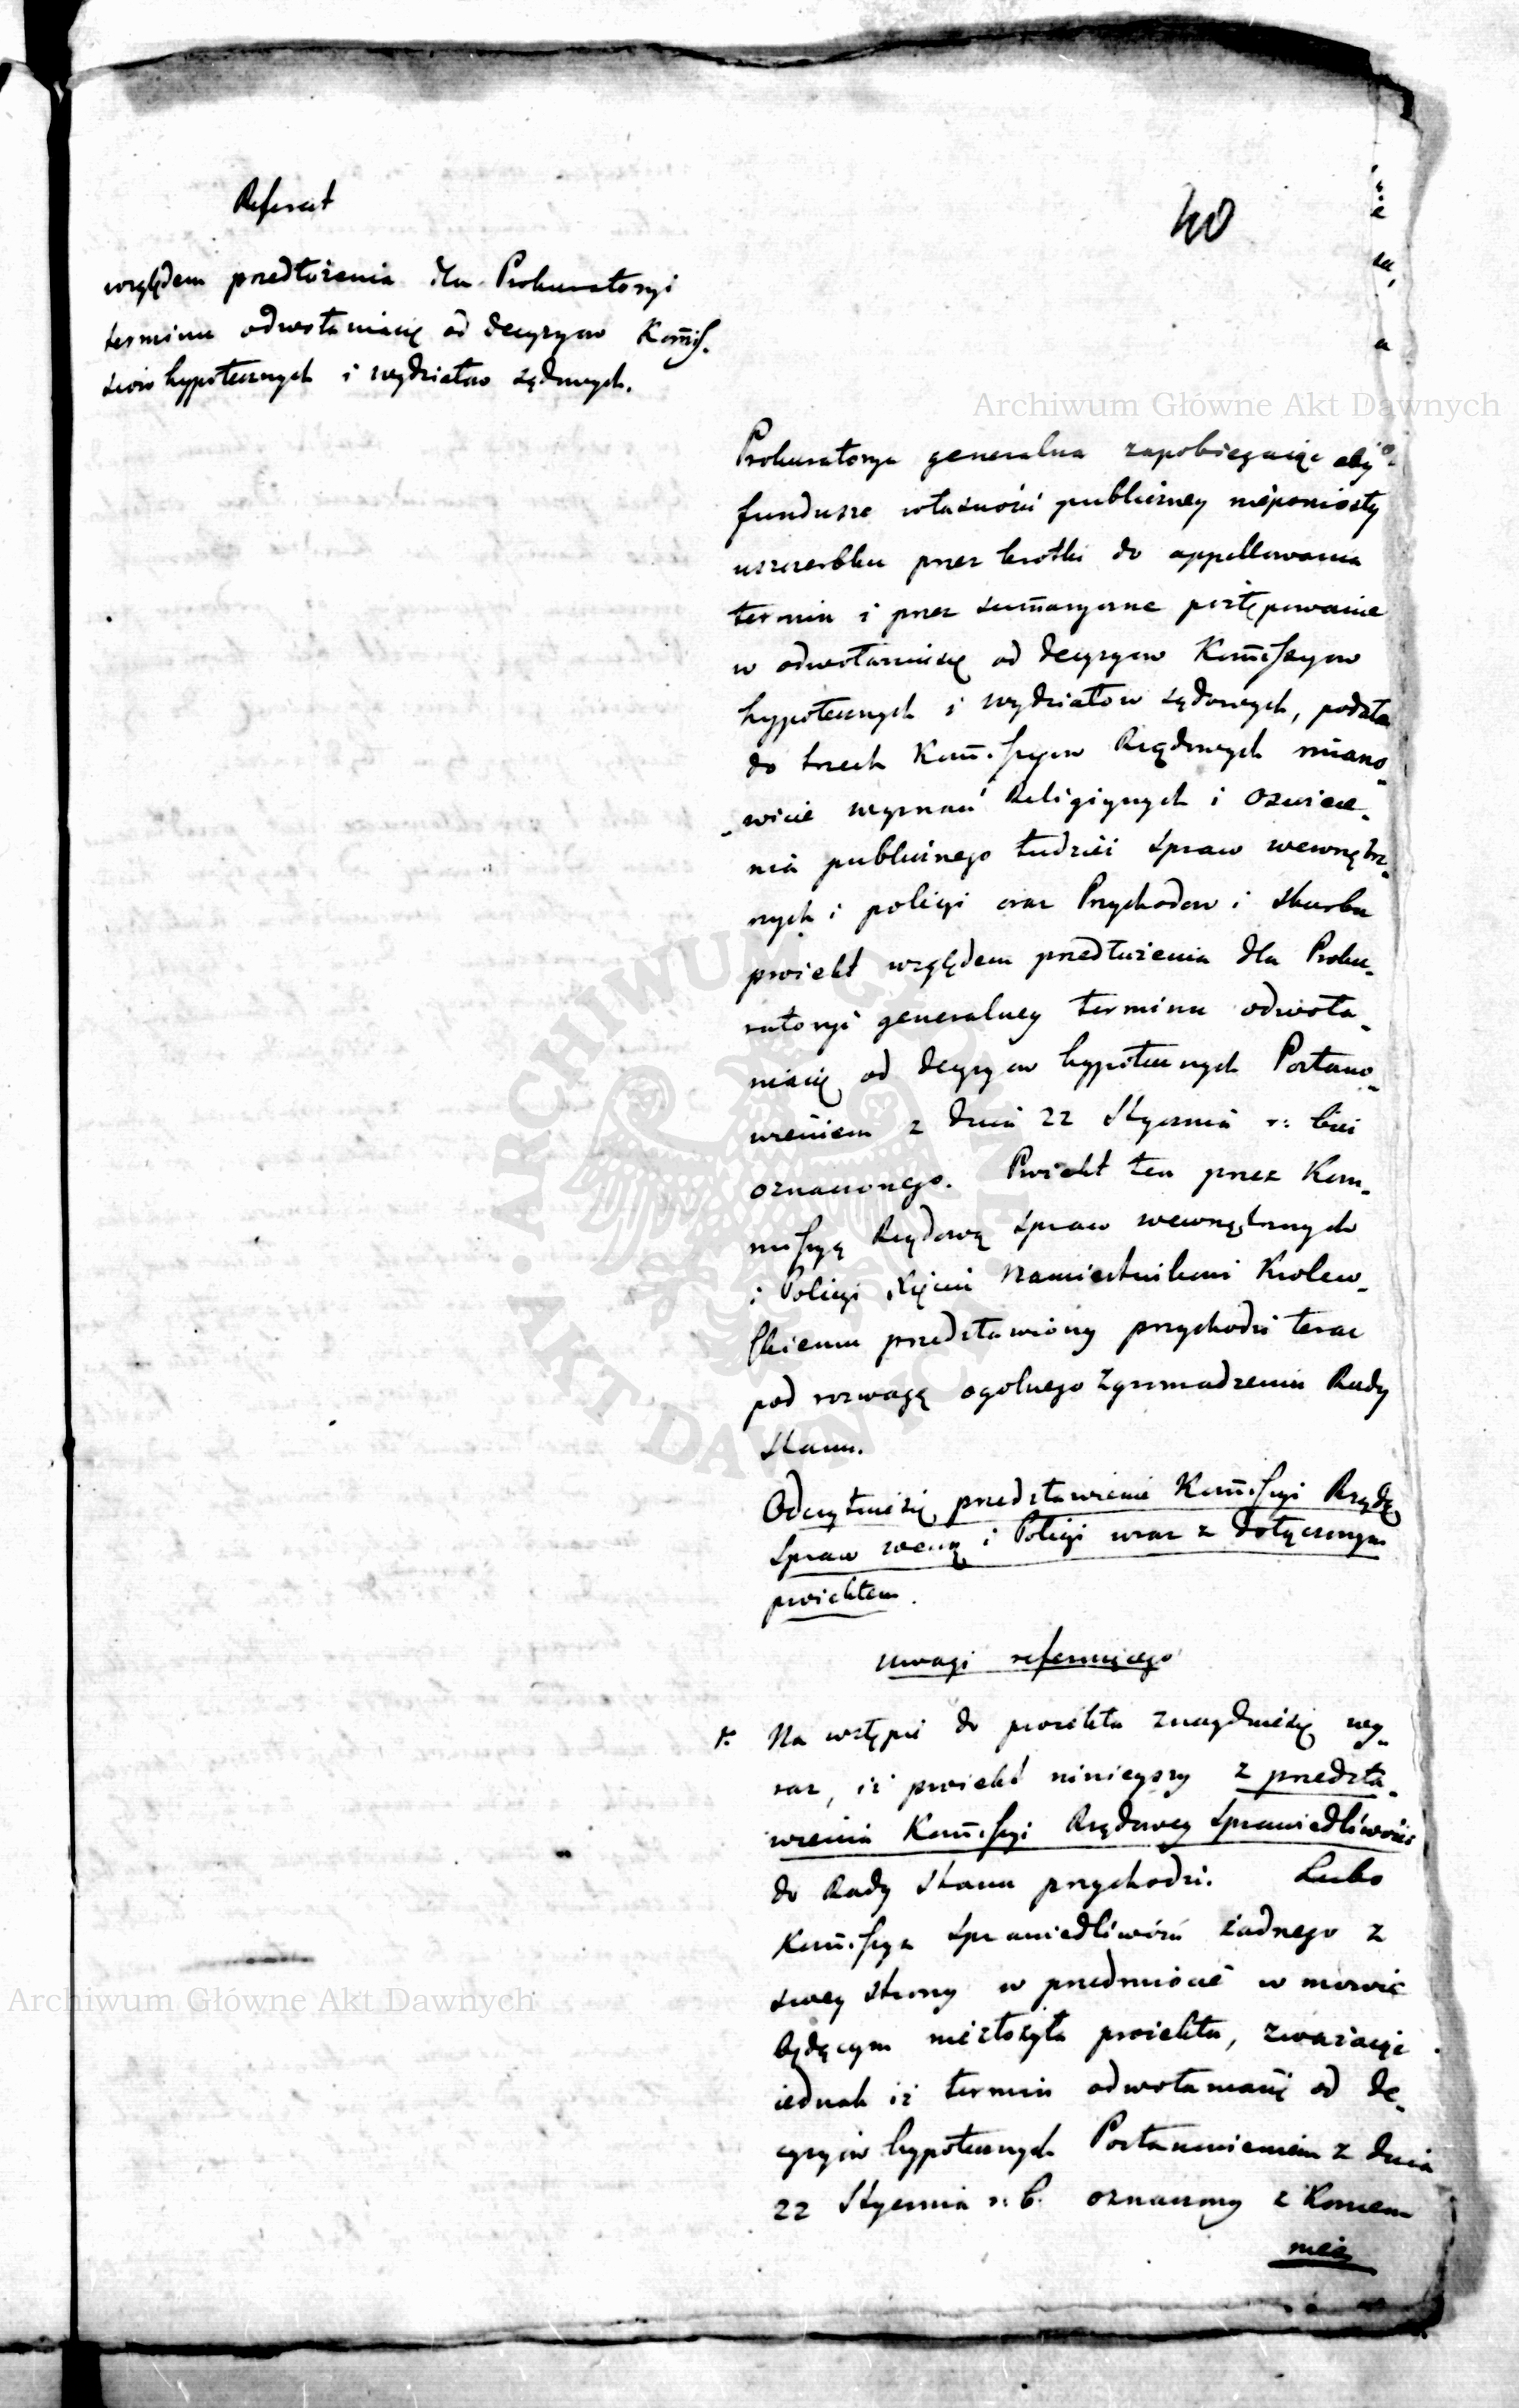 Referat
40
względem przedłużenia dla Prokuratoryi
terminu odwołaniasię od decyzyow Kom̄is.
siow hypotecznych i wydziałow sądowych.
Archiwum Główne Akt Dawnych
Prokuratorya generalna zapobiegaiąc aby
fundusze własności publiczney nieponiosły
uszczerbku przez krótki do appellowania
termin i przez sum̄aryczne postępowanie
w odwołaniusię od decyzyow Kom̄issyow
hypotecznych i wydziałow sądowych, podała
do trzech Kom̄issyow Rządowych miano-
-wicie wyznań Religiynych i Oswiece-
nia publicznego tudzież spraw wewnętrz-
nych i policyi oraz Przychodow i skarbu
proiekt względem przedłużenia dla Proku-
ratoryi generalney terminu odwoła-
niasię od decyzyow hypotecznych Postano-
wieniem z dnia 22 Stycznia r: bież
oznaczonego. Proiekt ten przez Kom-
missyą Rządową spraw wewnętrznych
i Policyi Xięciu Namiestnikowi Krolew-
skiemu przedstawiony przychodzi teraz
pod rozwagę ogolnego Zgromadzenia Rady
Stanu.
Odczytaniesię przedstawienie Kom̄issyi Rządo
Spraw wewnę i Policyi wraz z dołączonym
proiektem.
Uwagi referuiącego
1. Na wstępie do proiektu znayduiesię wy-
raz, iż proiekt ninieyszy z przedsta-
wienia Kom̄issyi Rządowey Sprawiedliwości
do Rady Stanu przychodzi. Lubo
Kom̄issya Sprawiedliwości żadnego z
swey strony w przedmiocie w mowie
będącym niezłożyła proiektu, zważaiąc
iednak iż termin odwołaniasię od de-
cyzyiow hypotecznych Postanowieniem z dnia
22 Stycznia r. b. oznaczony z Koniem
nież
Archiwum Główne Akt Dawnych
ARCHIWUM GŁÓWNE AKT DAWNYCH